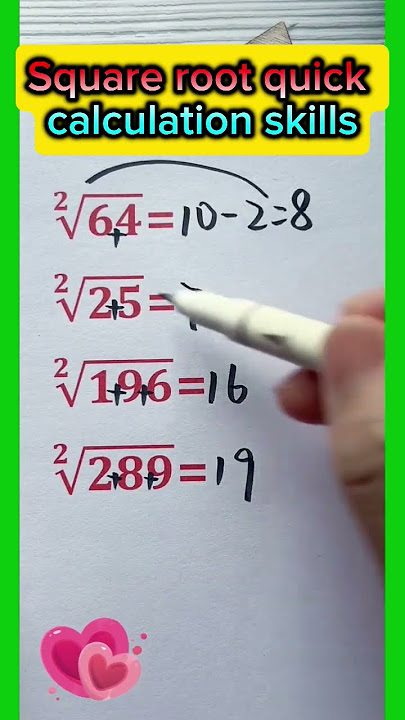 Square root quick
calculation skills
²√64=10-2=8
²√25=
²√196=16
²√289=19